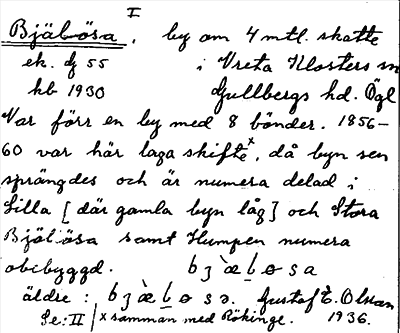 I
Bjälösa, by om 4 mtl. skatte
ek. bl 55 i Vreta Klosters sn
kb 1930 Gullbergs hd. Ögl
Var förr en by med 8 bönder. 1856–
60 var här laga skifte×, då byn sen
sprängdes och är numera delad i
Lilla [där gamla byn låg] och Stora
Bjälösa samt Humpen numera
obebyggd. bʒæ̀ḷɵsa
äldre: bʒæ̀ḷɵsə. Gustaf E. Olsson
Se: II | × samman med Rökinge. 1936.